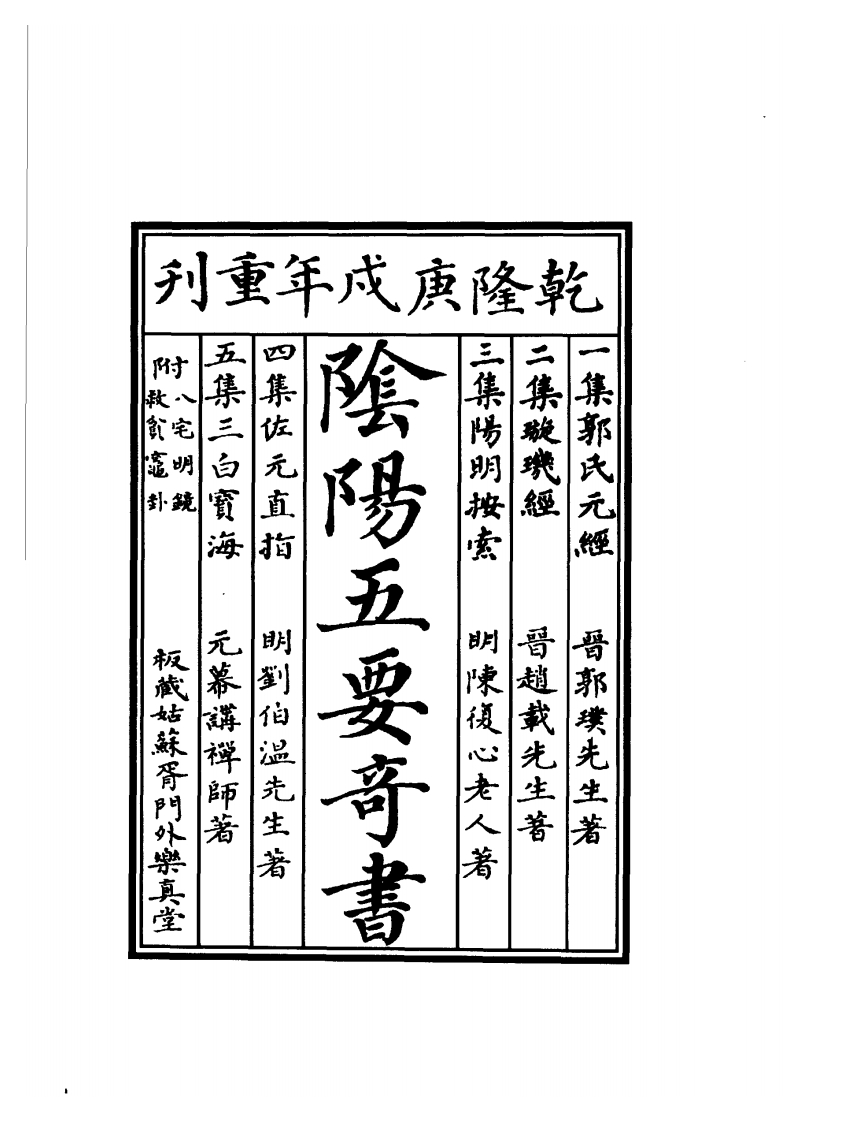 乾隆庚戌年重刊
一集郭氏元經 晉郭璞先生著
二集璇璣經 晉趙載先生著
三集陽明按索 明陳復心老人著
陰陽五要奇書
四集佐元直指 明劉伯溫先生著
五集三白寶海 元幕講禪師著
附八宅明鏡
附救貧竈卦
板藏姑蘇胥門外樂真堂